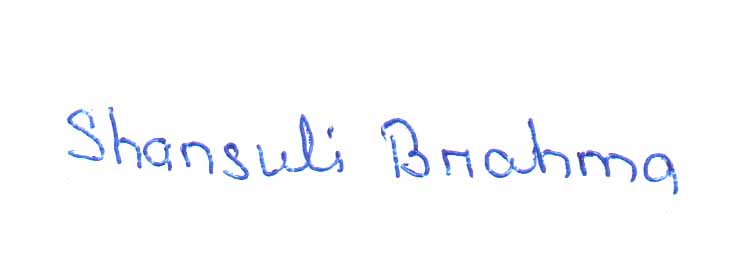 Shansuli Brahma